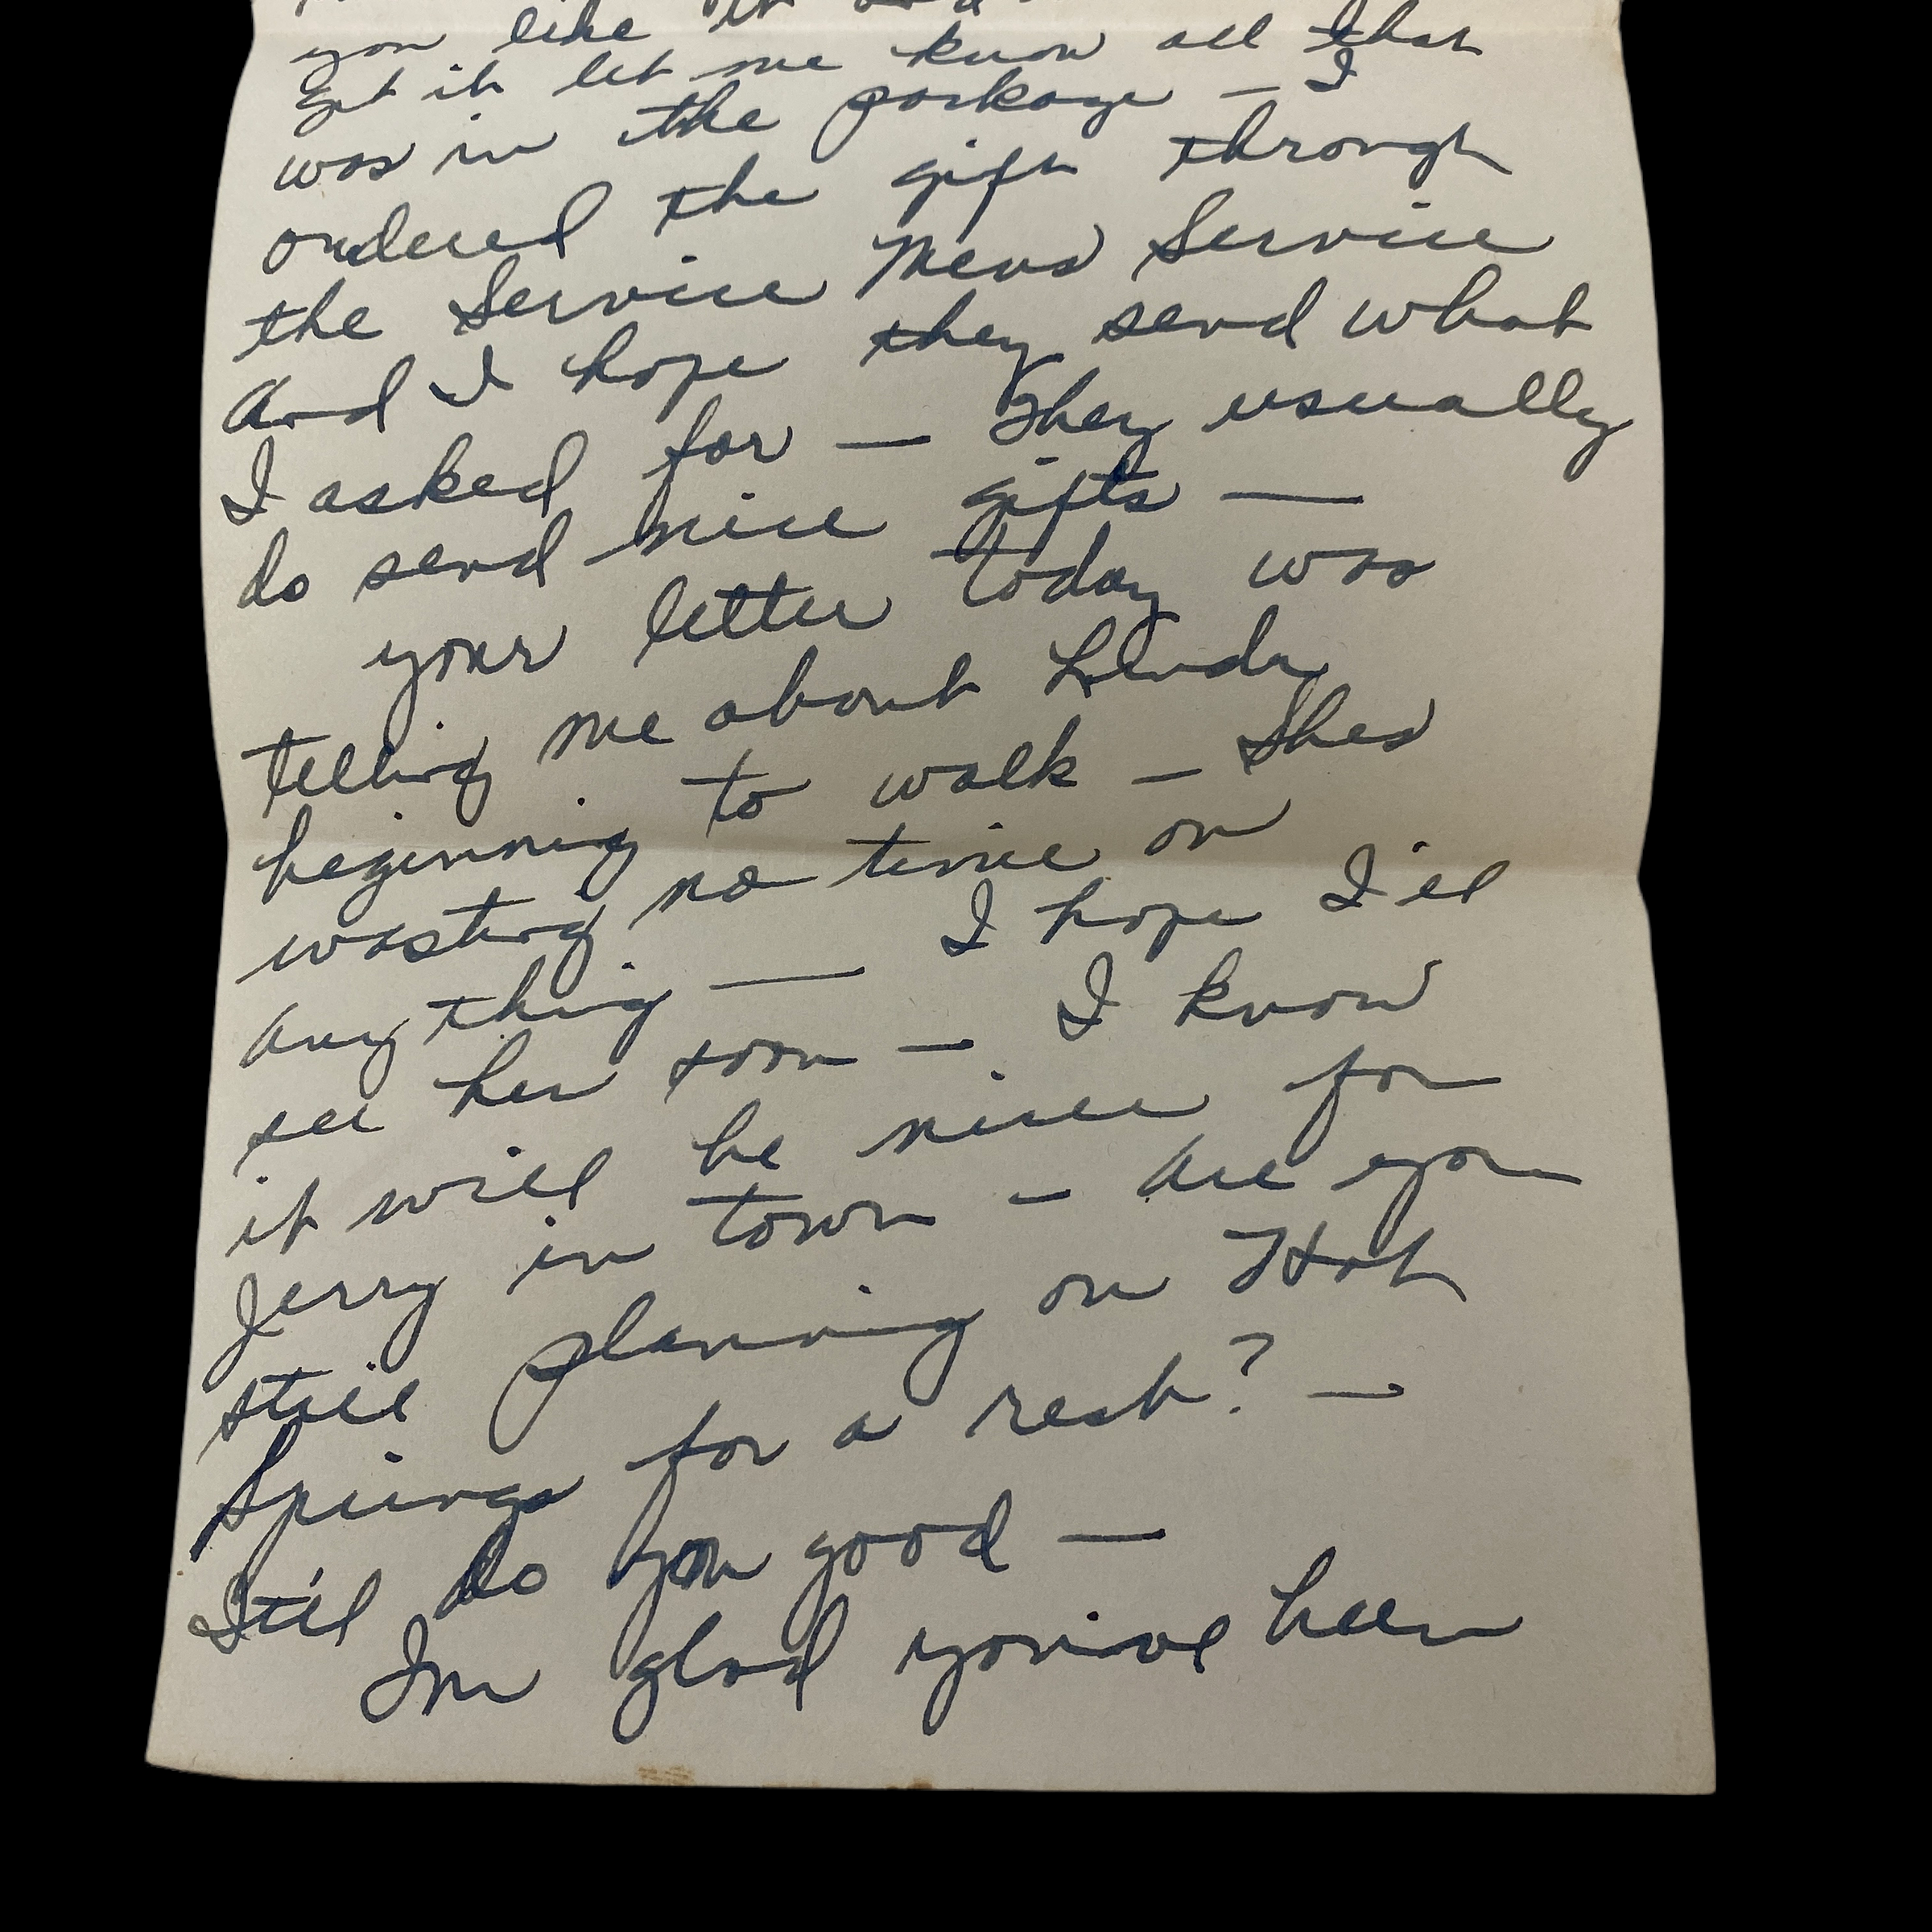 you like it and
get it let me know all that
was in the package — I
ordered the gift through
the Service Mens Service
And I hope they send what
I asked for — They usually
do send nice gifts —
your letter today was
telling me about Linda
beginning to walk — Shes
wasting no time on
anything — I hope I'll
see her soon — I know
it will be nice for
Jerry in town — are you
still planning on Hot
Springs for a rest? —
It'll do you good —
Im glad you've been